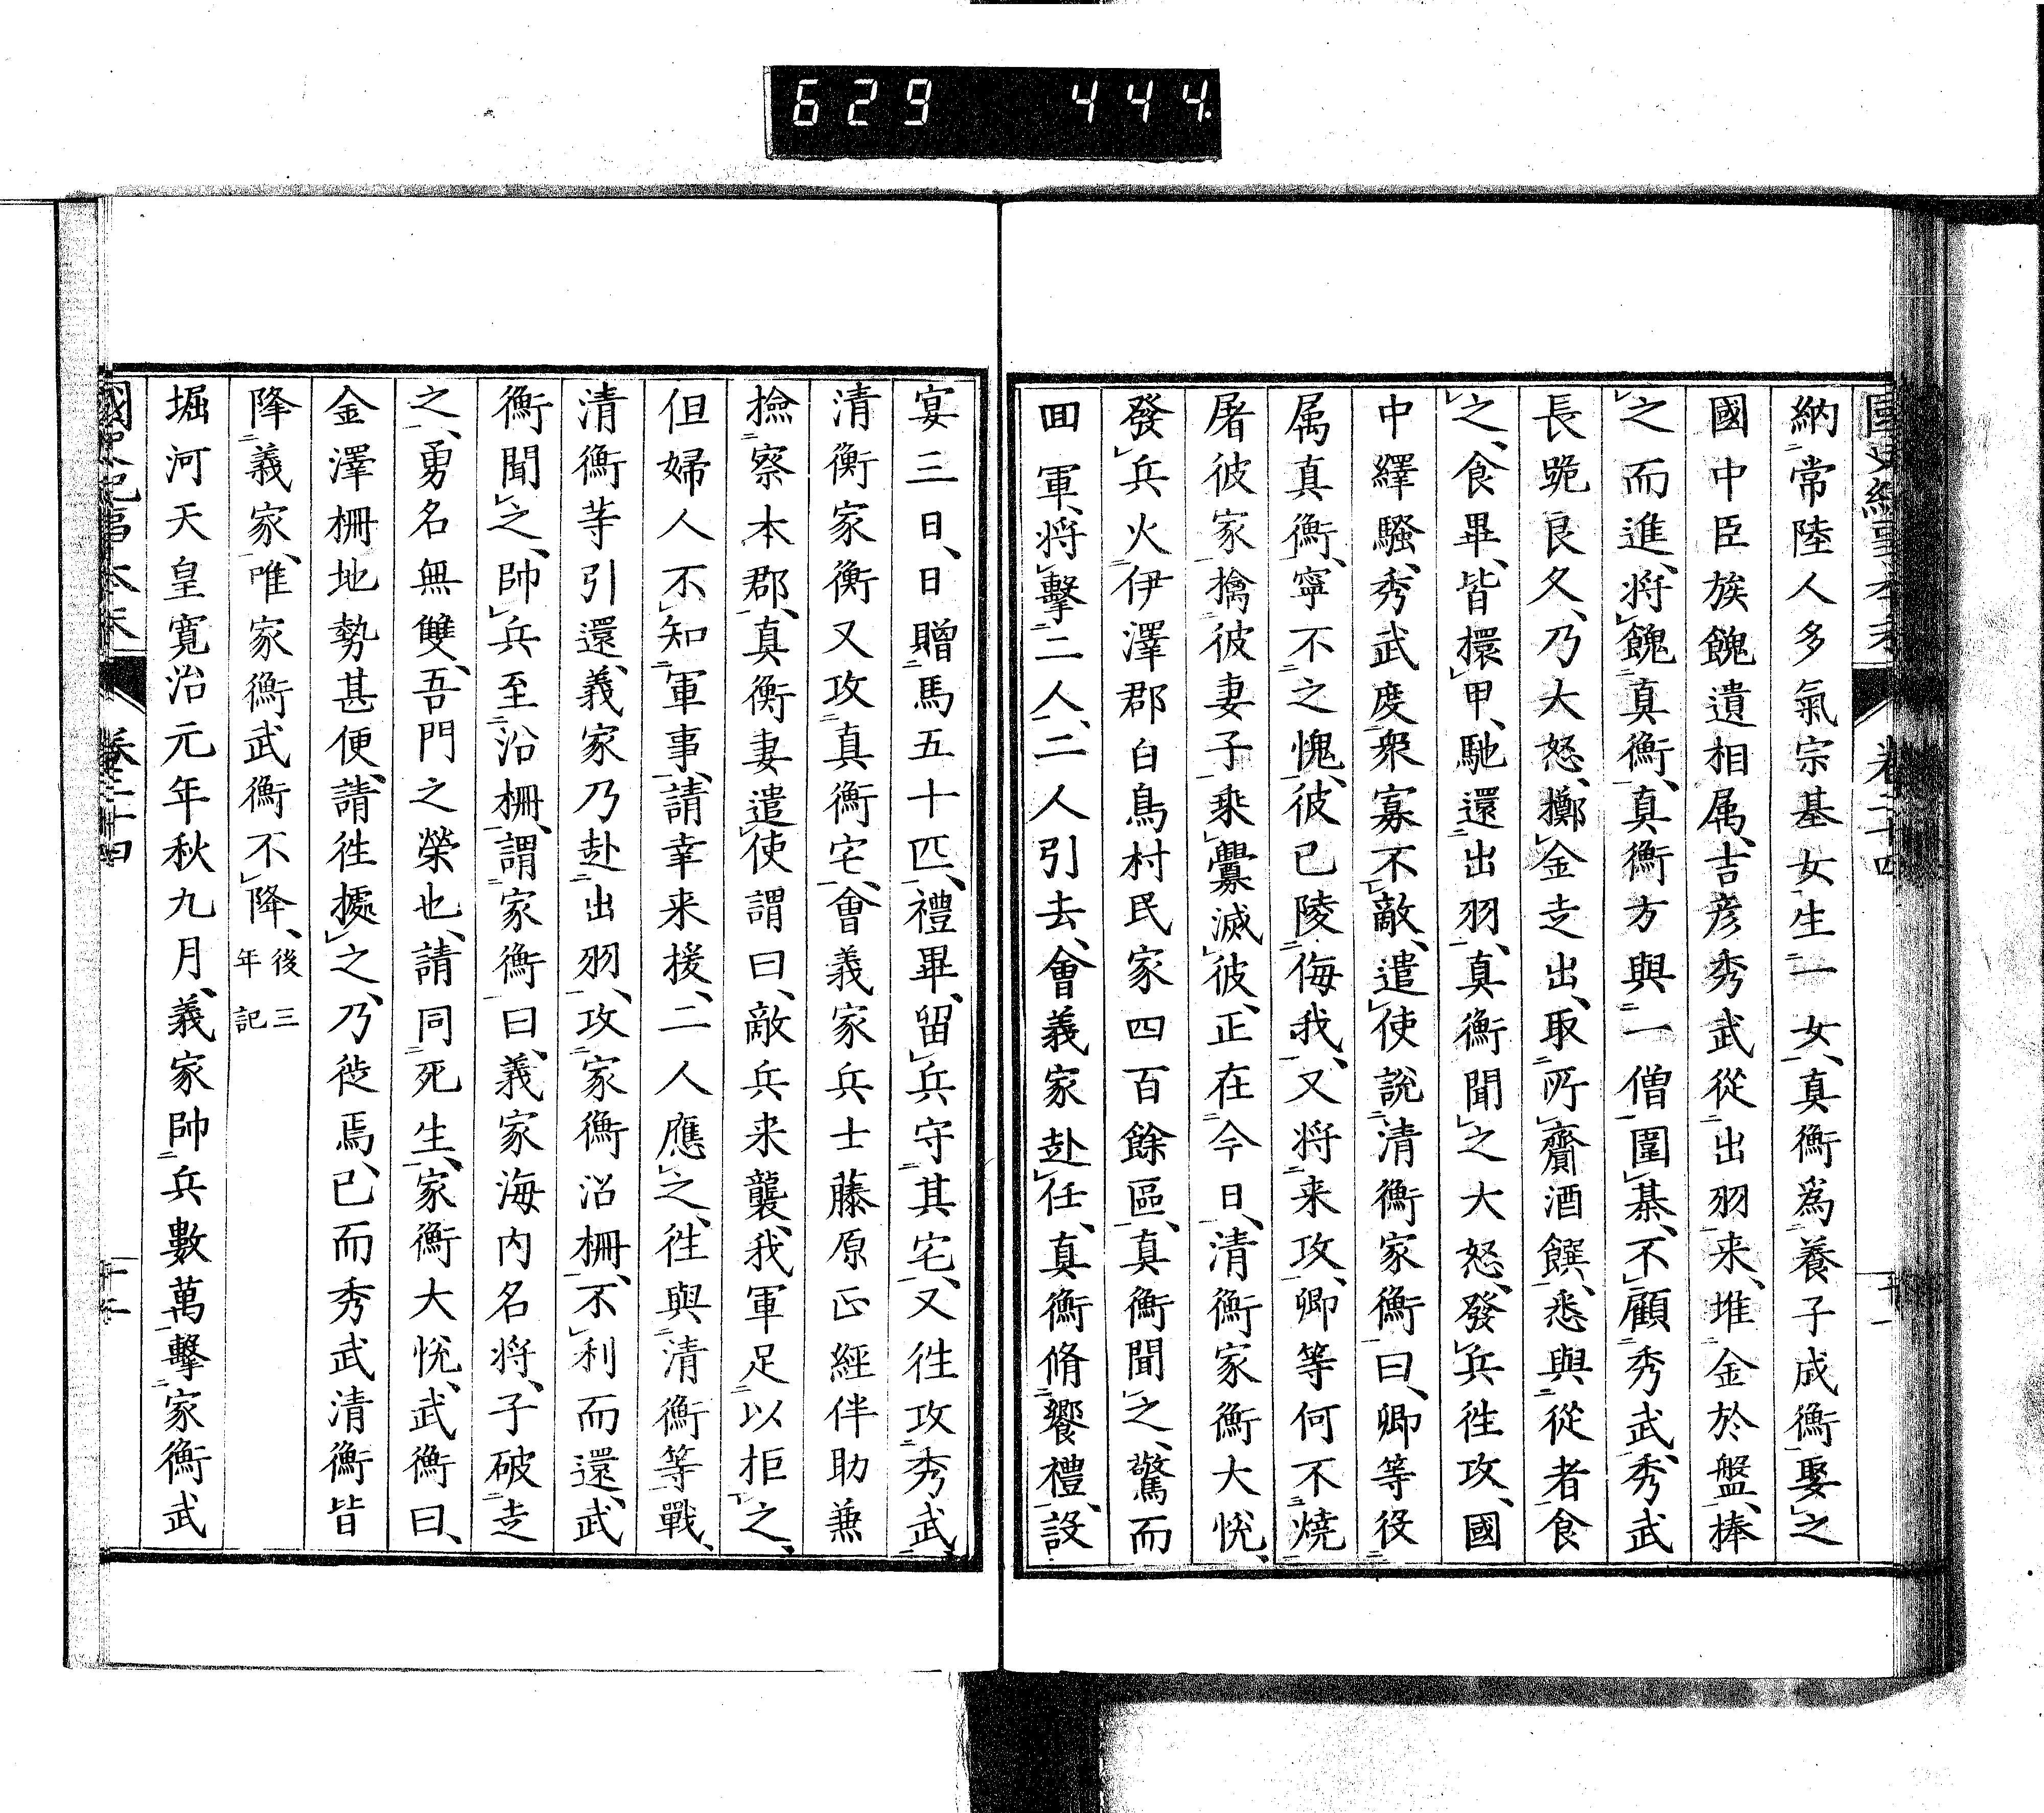 629 444.
國史紀事本末 卷二十四 十一
納常陸人多氣宗基女、生一女、真衡為養子成衡娶之
國中臣族餽遺相屬、吉彦秀武從出羽来、堆金於盤、捧
之而進、将餽真衡、真衡方與一僧圍棊、不顧秀武、秀武
長跪良久、乃大怒、擲金走出、取所齎酒饌、悉與從者食
之、食畢、皆擐甲、馳還出羽、真衡聞之大怒、發兵徃攻、國
中繹騷、秀武度衆寡不敵、遣使說清衡家衡曰、卿等役
属真衡、寧不之愧、彼已陵侮我、又将来攻、卿等何不燒
屠彼家、擒彼妻子、乘釁滅彼、正在今日、清衡家衡大悅、
發兵火伊澤郡白鳥村民家四百餘區、真衡聞之、驚而
囬軍、将擊二人、二人引去、會義家赴任、真衡脩饗禮、設
宴三日、日贈馬五十匹、禮畢、留兵守其宅、又徃攻秀武、
清衡家衡又攻真衡宅、會義家兵士藤原正經伴助兼
撿察本郡、真衡妻遣使謂曰、敵兵来襲、我軍足以拒之、
但婦人不知軍事、請幸来援、二人應之、徃與清衡等戰、
清衡等引還、義家乃赴出羽、攻家衡沼柵、不利而還、武
衡聞之、帥兵至沼柵、謂家衡曰、義家海内名将、子破走
之、勇名無雙、吾門之榮也、請同死生、家衡大悅、武衡曰、
金澤柵地勢甚便、請徃據之、乃徙焉、已而秀武清衡皆
降義家、唯家衡武衡不降、後三年記
堀河天皇寛治元年秋九月、義家帥兵數萬、擊家衡武
國史紀事本末 卷二十四 十二